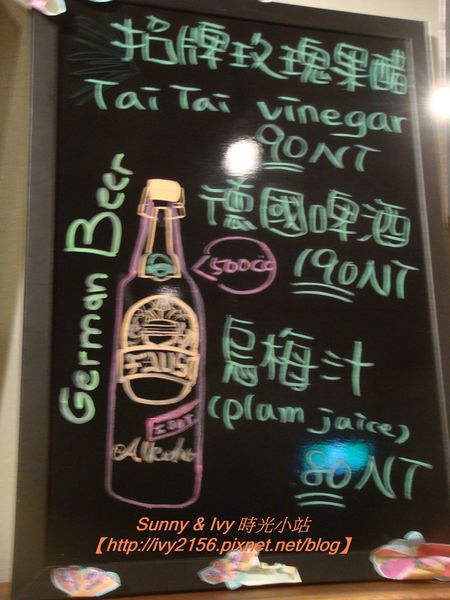 招牌玫瑰果醋
Tai Tai vinegar
90NT
German Beer
德國啤酒
500cc
190NT
FAUST
烏梅汁
(plam jaice)
80NT
Sunny & Ivy 時光小站
【http://ivy2156.pixnet.net/blog】